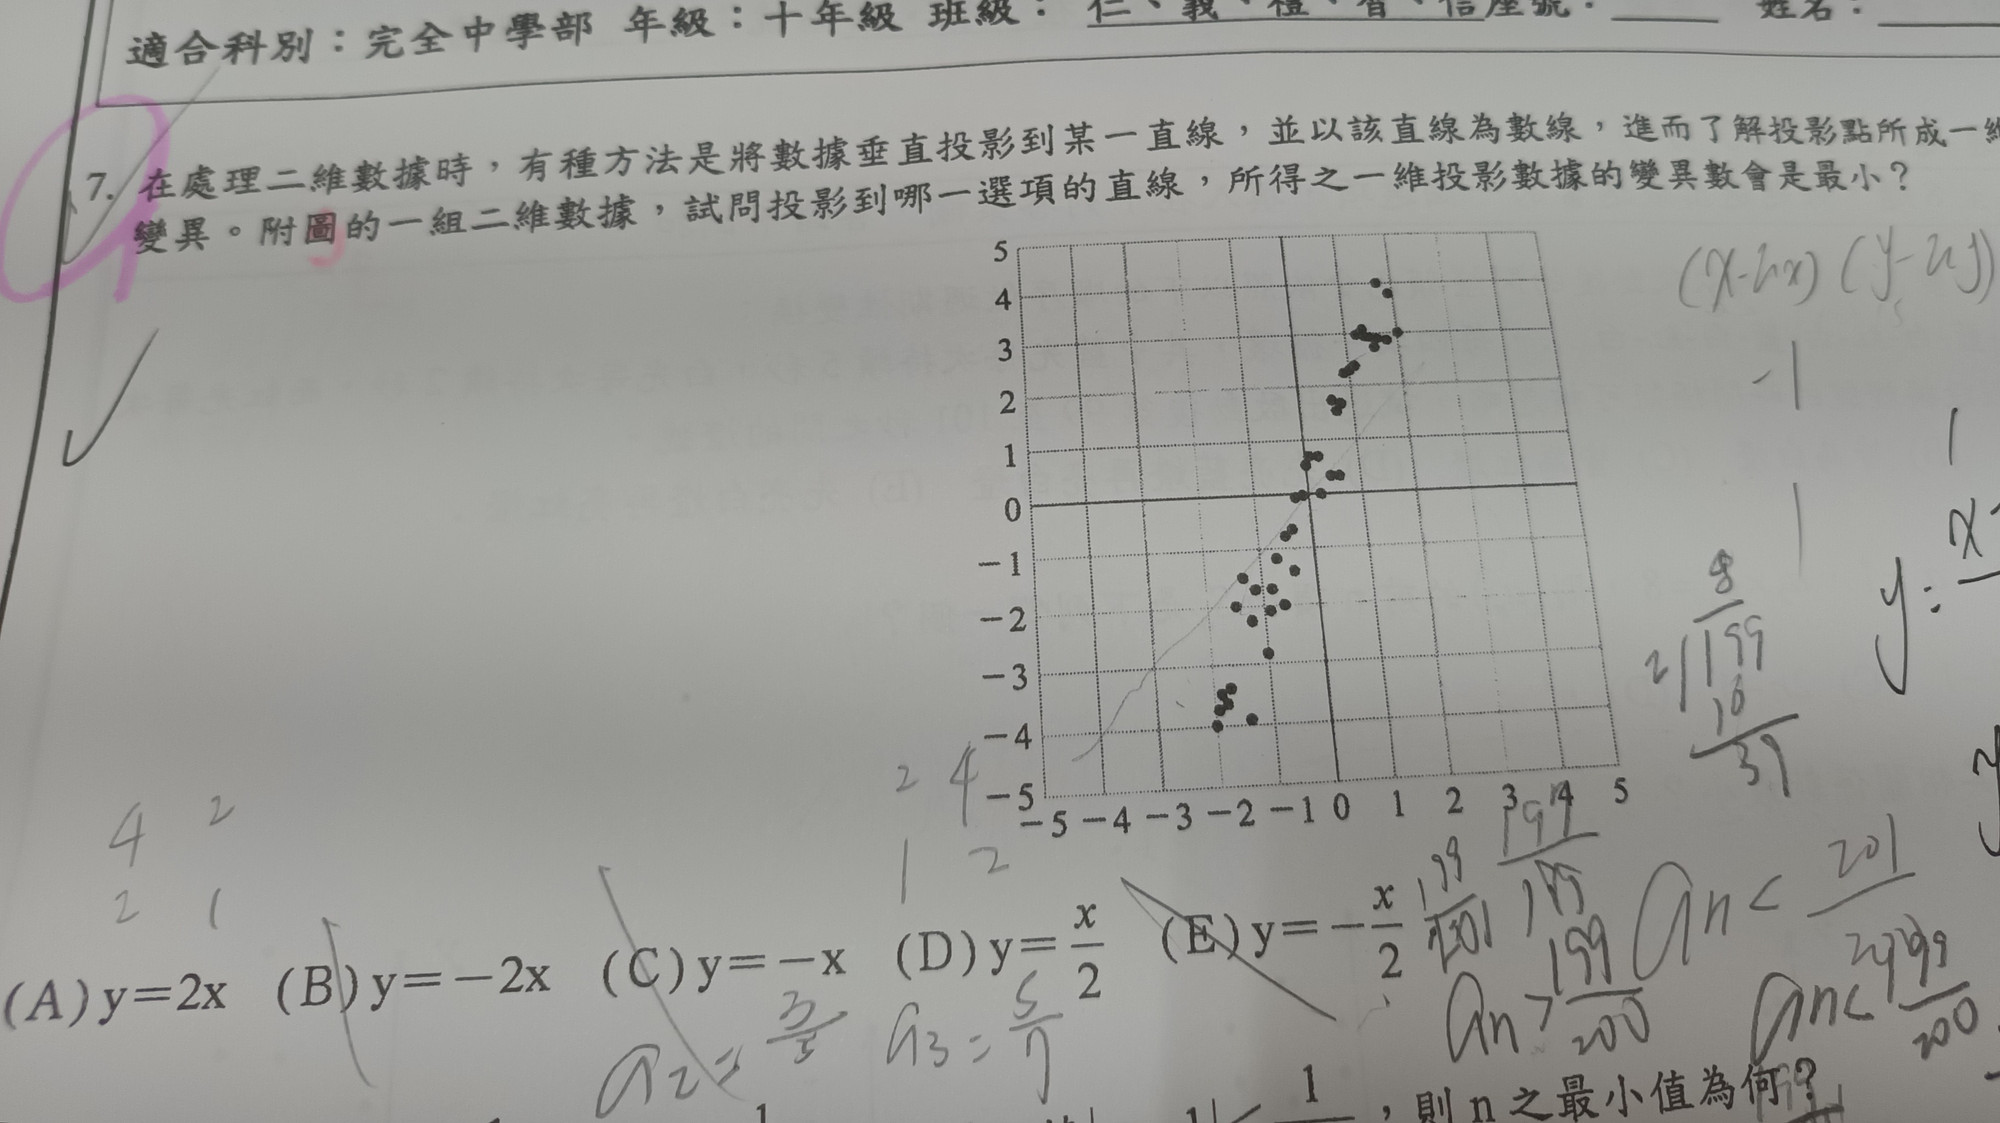 適合科別：完全中學部 年級：十年級 班級： 仁、義、禮、智、信座號：_____ 姓名：
7. 在處理二維數據時，有種方法是將數據垂直投影到某一直線，並以該直線為數線，進而了解投影點所成一維
變異。附圖的一組二維數據，試問投影到哪一選項的直線，所得之一維投影數據的變異數會是最小？
5
4
3
2
1
0
-1
-2
-3
-4
-5
-5 -4 -3 -2 -1 0 1 2 3 4 5
(x-ux) (y-uy)
-1
1
8
2 199
16
39
2 4
1 2
4 2
2 1
(A) y=2x (B) y=-2x (C) y=-x (D) y=x/2 (E) y=-x/2
a2=3/5 a3=5/7
an>199/200
an<201
，則 n 之最小值為何？